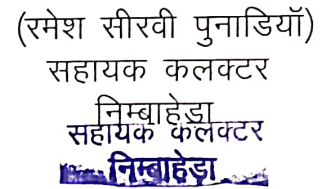 (रमेश सीरवी पुनाडियॉ)
सहायक कलक्टर
निम्बाहेडा
सहायक कलक्टर
निम्बाहेड़ा